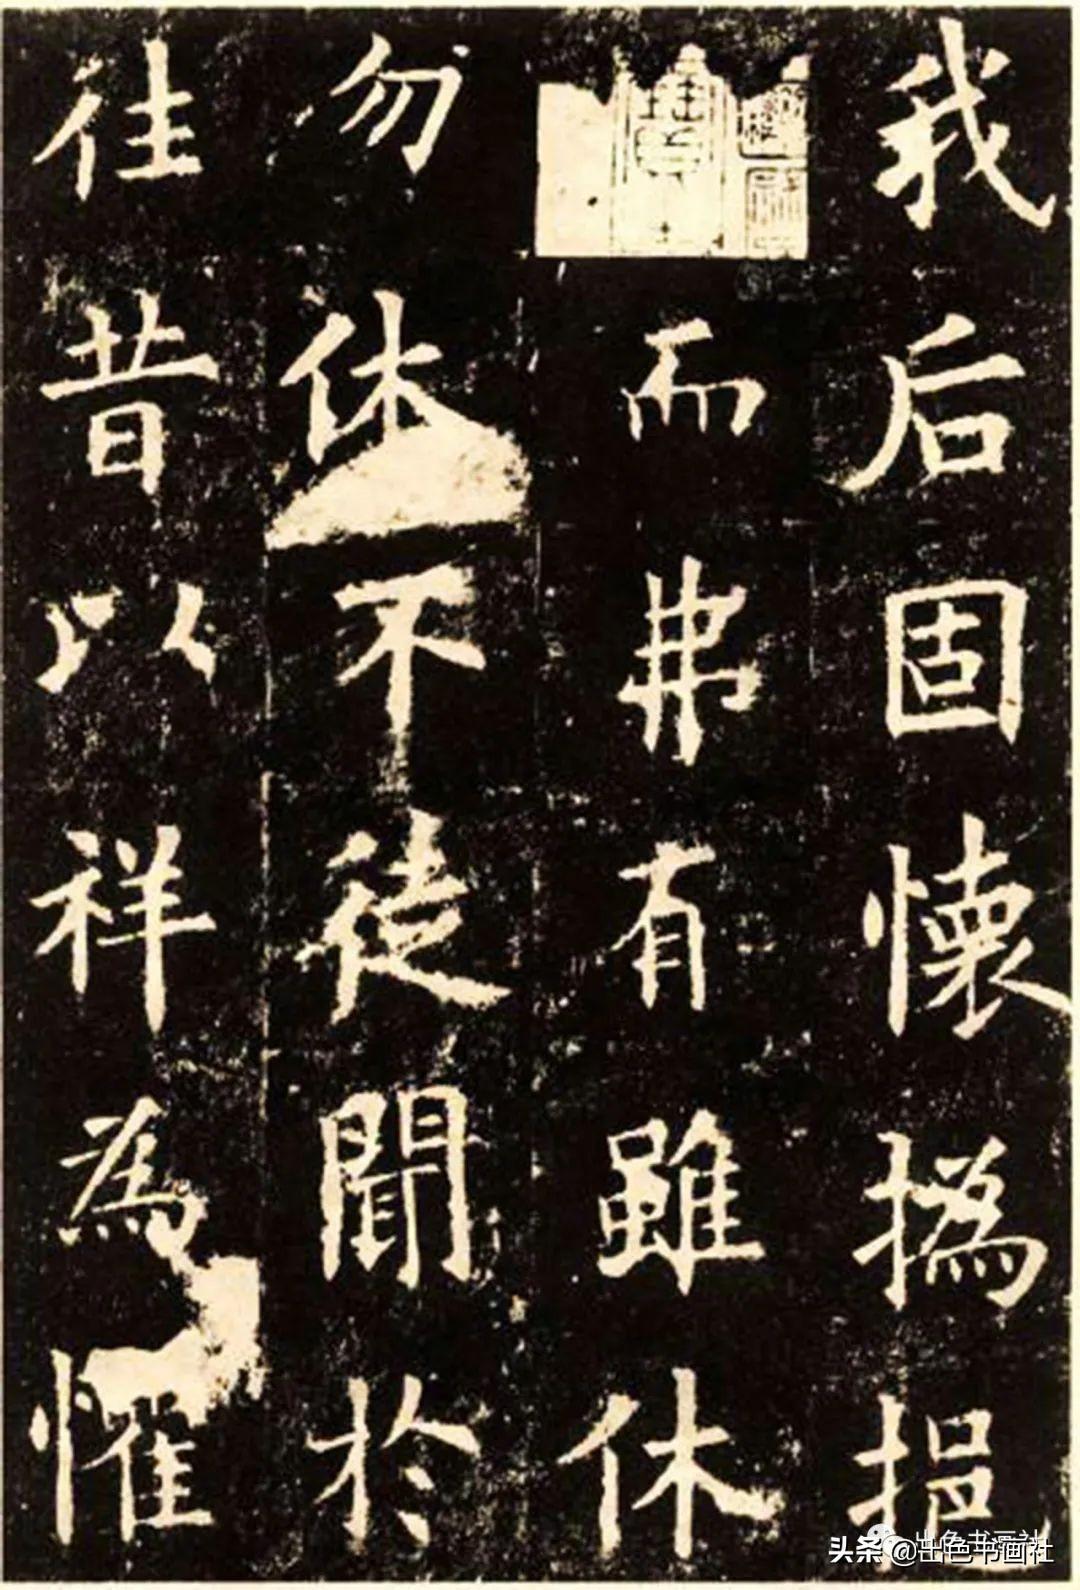 我后固懷撝挹
而弗有雖休
勿休不徒聞於
往昔以祥為懼
头条 @出色书画社
出色书画社